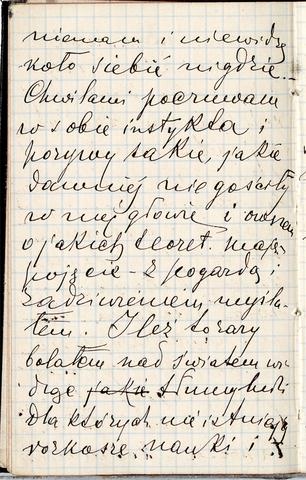 niemam i niewidzę
koło siebie nigdzie.
Chwilami poczuwam
w sobie instykta i
porywy takie, jakie
dawniéj nie gościły
w mej głowie i
o jakich teoret. mając
pojęcie - z pogardą i
zadziwieniem myśla-
łem. Ileż to razy
bolałem nad światem
jako
dla których nie istnieją
rozkosze nauki i